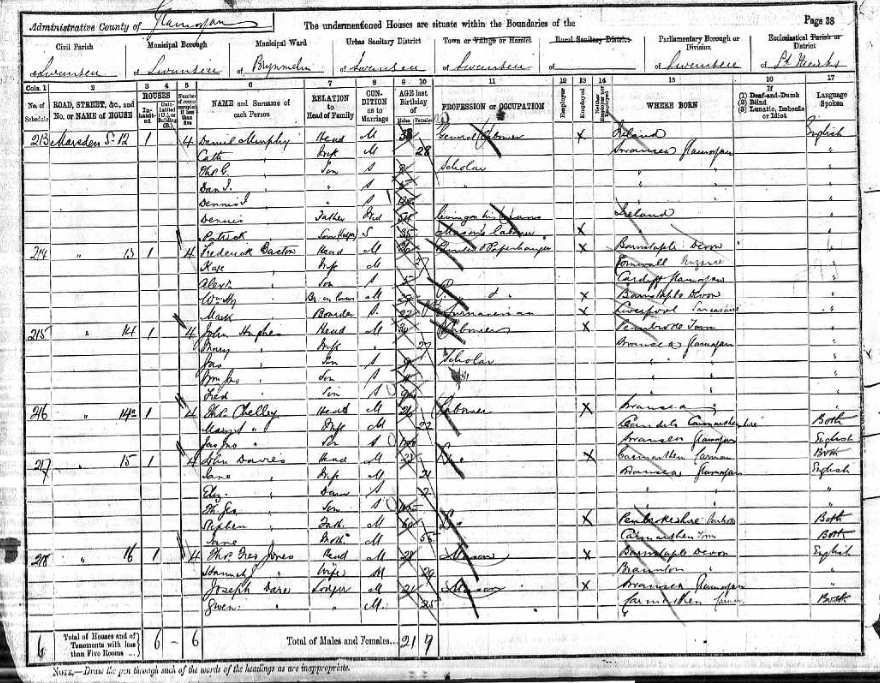 Administrative County of Glamorgan The undermentioned Houses are situate within the Boundaries of the Page 38
Civil Parish Municipal Borough Municipal Ward Urban Sanitary District Town or Village or Hamlet Rural Sanitary District Parliamentary Borough or Division Ecclesiastical Parish or District
of Swansea of Swansea of Brynmelin of Swansea of Swansea of of Swansea of St Marks
Cols. 1 2 3 4 5 6 7 8 9 10 11 12 13 14 15 16 17
No. of Schedule ROAD, STREET, &c., and No. or NAME of HOUSE HOUSES Inhabited Uninhabited (U.), or Building (B.) Number of rooms occupied if less than five NAME and Surname of each Person RELATION to Head of Family CONDITION as to Marriage AGE last Birthday of Males Females PROFESSION or OCCUPATION Employer Employed Neither Employer nor Employed WHERE BORN If (1) Deaf-and-Dumb (2) Blind (3) Lunatic, Imbecile or Idiot Language Spoken
213 Marsden St 12 1 4 Daniel Murphy Head M 38 General Labourer X Ireland English
Cath " Wife M 28 Swansea Glamorgan "
Thos C. " Son S Scholar " "
Dan J. " " S " "
Dennis J " " S " "
Dennis " Father Wid Living on his Means Ireland "
Patrick " S 35 Mason's Labourer X " "
214 " 13 1 4 Frederick Head M Painter & Paperhanger X Barnstaple Devon "
Kate " Wife M 27 Cornwall "
Alex " Son S Cardiff Glamorgan "
Wm Hy " Br in law M X Barnstaple Devon "
Mark Boarder S 22 X Liverpool Lancashire "
215 " 14 1 4 John Hughes Head M 30 Labourer X Pembroke Town "
Mary " Wife " 27 Swansea Glamorgan "
Jas " Son S Scholar " "
Wm Jno " Son S " "
Fred " Son S " "
216 " 14a 1 4 Thos Chelley Head M 26 Labourer X Swansea "
Margt " Wife M 22 Carmarthenshire Both
Jas Jno " Son S Swansea Glamorgan English
217 " 15 1 4 John Davies Head M 23 Do X Carmarthen Both
Jane " Wife M 21 Swansea Glamorgan English
Eliz. " Daur S " "
" Son S " "
Stephen " Fath M 60 Do X Pembrokeshire Both
Jane " Moth M 55 Carmarthen Town Both
218 " 16 1 4 Thos Jones Head M 28 Mason X Barnstaple Devon English
Hannah J " Wife M 29 Braunton "
Joseph Lodger M 21 Mason X Swansea Glamorgan "
Gwen " " M 25 Carmarthen Both
6 Total of Houses and of Tenements with less than Five Rooms 6 - 6 Total of Males and Females... 21 9
NOTE.—Draw the pen through such of the words of the headings as are inappropriate.